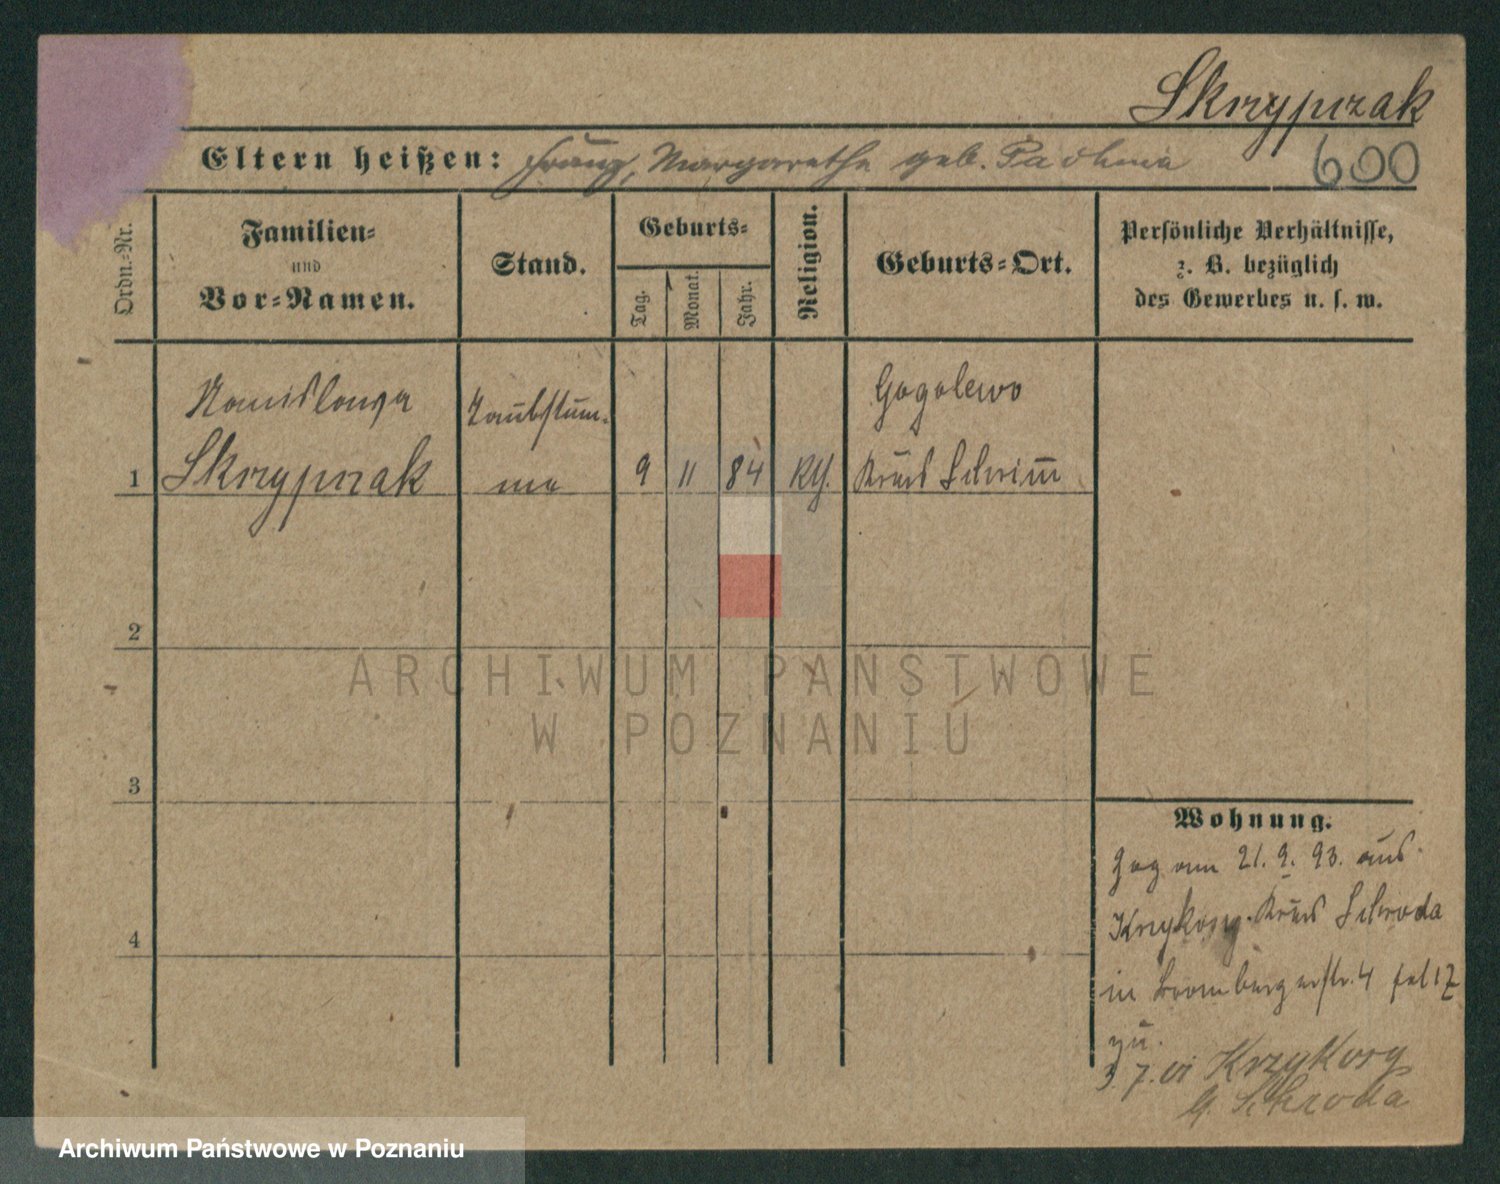 Skrzypczak
Eltern heißen: Franz, Margarethe geb.
600
Ordn.-Nr.
Familien-
und
Vor-Namen.
Stand.
Geburts-
Tag.
Monat.
Jahr.
Religion.
Geburts-Ort.
Persönliche Verhältnisse,
z. B. bezüglich
des Gewerbes u. s. w.
1
Stanislawa
Skrzypczak
Taubstum-
me
9
11
84
Kth.
Gogolewo
Kreis Schrimm
2
3
4
Wohnung.
Zog am 21. 9. 93. aus
Krzykosy Kreis Schroda
in Brombergerstr. 4
zu.
3. 7. 01 Krzykosy
Schroda
ARCHIWUM PAŃSTWOWE
W POZNANIU
Archiwum Państwowe w Poznaniu